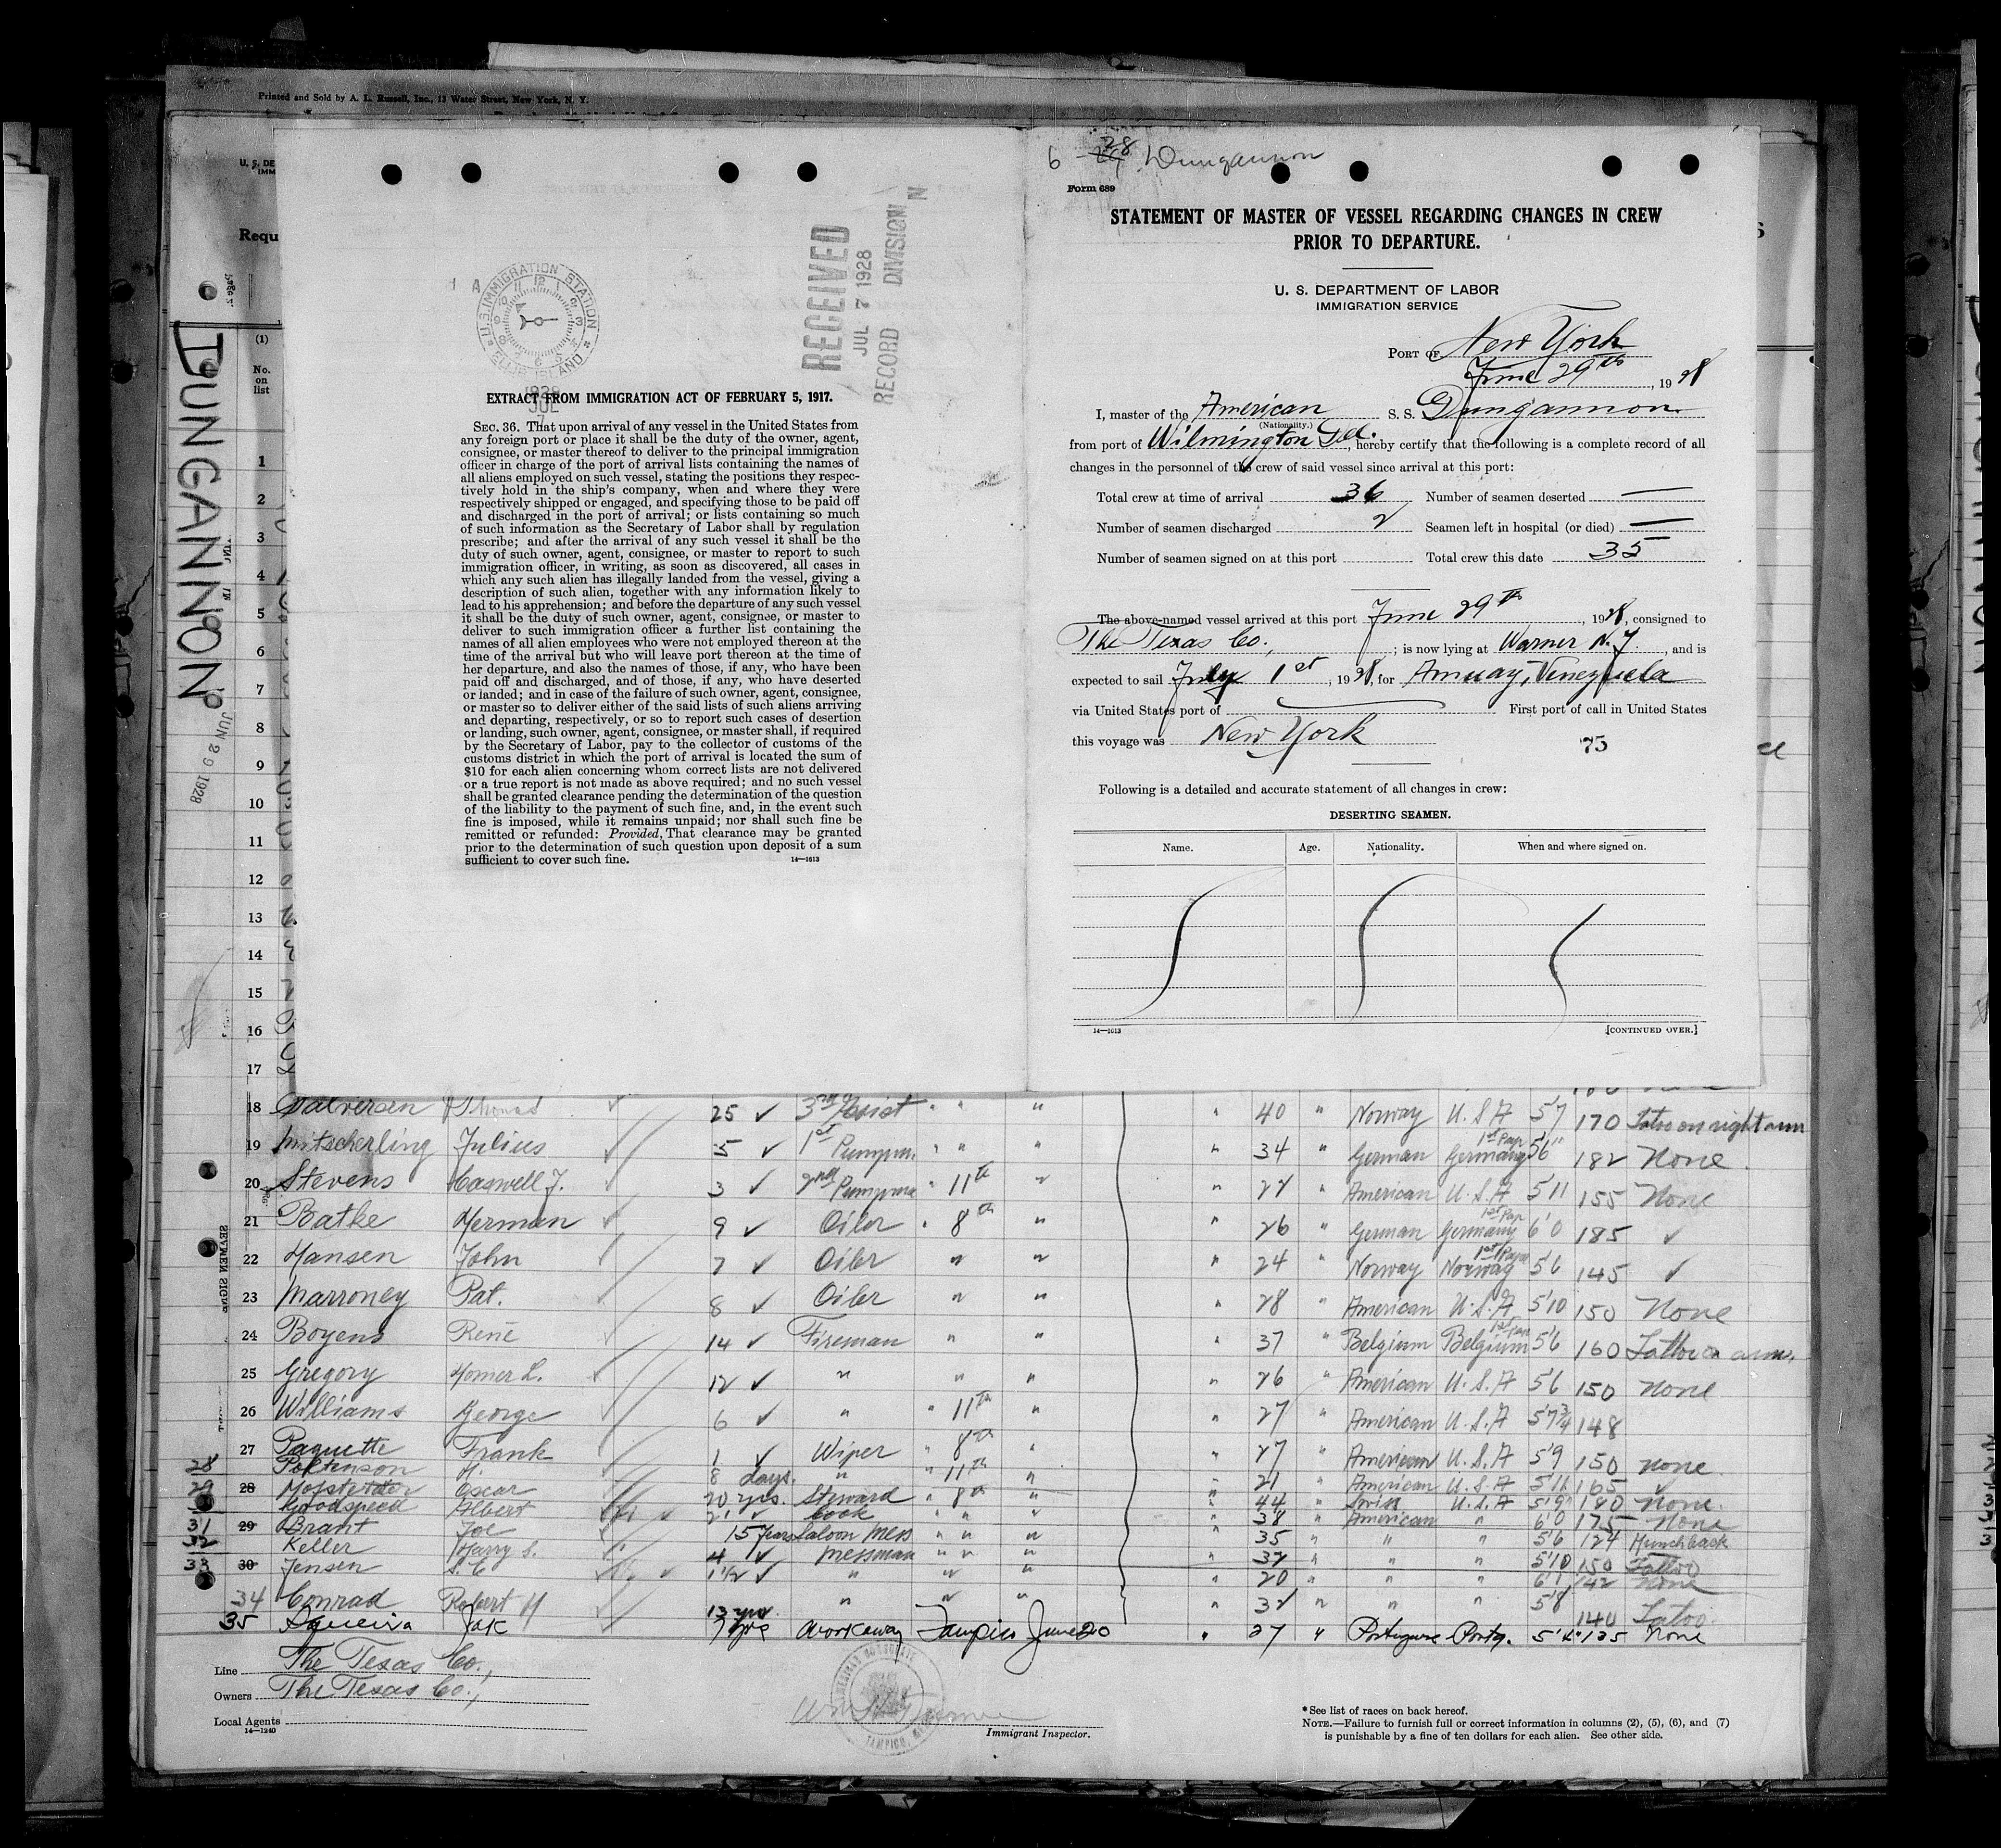 Printed and Sold by A. L. Russell, Inc., 13 Water Street, New York, N. Y.
U. S. DE
IMM
Requ
(1)
No.
on
list
DUNGANNON
JUN 29 1928
1
2
3
4
5
6
7
8
9
10
11
12
13
14
15
16
17
RECEIVED
JUL 7 1928
RECORD DIVISION
N
U.S. IMMIGRATION STATION
ELLIS ISLAND
1928
JUL
7
EXTRACT FROM IMMIGRATION ACT OF FEBRUARY 5, 1917.
SEC. 36. That upon arrival of any vessel in the United States from
any foreign port or place it shall be the duty of the owner, agent,
consignee, or master thereof to deliver to the principal immigration
officer in charge of the port of arrival lists containing the names of
all aliens employed on such vessel, stating the positions they respec-
tively hold in the ship's company, when and where they were
respectively shipped or engaged, and specifying those to be paid off
and discharged in the port of arrival; or lists containing so much
of such information as the Secretary of Labor shall by regulation
prescribe; and after the arrival of any such vessel it shall be the
duty of such owner, agent, consignee, or master to report to such
immigration officer, in writing, as soon as discovered, all cases in
which any such alien has illegally landed from the vessel, giving a
description of such alien, together with any information likely to
lead to his apprehension; and before the departure of any such vessel
it shall be the duty of such owner, agent, consignee, or master to
deliver to such immigration officer a further list containing the
names of all alien employees who were not employed thereon at the
time of the arrival but who will leave port thereon at the time of
her departure, and also the names of those, if any, who have been
paid off and discharged, and of those, if any, who have deserted
or landed; and in case of the failure of such owner, agent, consignee,
or master so to deliver either of the said lists of such aliens arriving
and departing, respectively, or so to report such cases of desertion
or landing, such owner, agent, consignee, or master shall, if required
by the Secretary of Labor, pay to the collector of customs of the
customs district in which the port of arrival is located the sum of
$10 for each alien concerning whom correct lists are not delivered
or a true report is not made as above required; and no such vessel
shall be granted clearance pending the determination of the question
of the liability to the payment of such fine, and, in the event such
fine is imposed, while it remains unpaid; nor shall such fine be
remitted or refunded: Provided, That clearance may be granted
prior to the determination of such question upon deposit of a sum
sufficient to cover such fine. 14—1613
6 - 28 Dungannon
Form 689
STATEMENT OF MASTER OF VESSEL REGARDING CHANGES IN CREW
PRIOR TO DEPARTURE.
U. S. DEPARTMENT OF LABOR
IMMIGRATION SERVICE
PORT OF New York
June 29th, 1928
I, master of the American S. S. Dungannon
(Nationality.)
from port of Wilmington Del., hereby certify that the following is a complete record of all
changes in the personnel of the crew of said vessel since arrival at this port:
Total crew at time of arrival 36 Number of seamen deserted —
Number of seamen discharged 2 Seamen left in hospital (or died) —
Number of seamen signed on at this port Total crew this date 35
The above-named vessel arrived at this port June 29th, 1928, consigned to
The Texas Co., ; is now lying at Warner N.J., and is
expected to sail July 1st, 1928, for Amuay, Venezuela
via United States port of First port of call in United States
this voyage was New York 75
Following is a detailed and accurate statement of all changes in crew:
DESERTING SEAMEN.
Name. Age. Nationality. When and where signed on.
14—1613 [CONTINUED OVER.]
18 Halversen Thomas 25 ✓ 3rd Assist " " " " 40 " Norway U.S.A 5'7 170 Tatoo on right arm
19 Mitscherling Julius 5 ✓ 1st Pumpm. " " " " 34 " German Germany 1st Pap 5'6" 182 None.
20 Stevens Caswell J. 3 ✓ 2nd Pumpma " 11th " " 22 " American U.S.A 5'11 155 None
21 Batke Herman 9 ✓ Oiler " 8th " " 26 " German Germany 1st Pap 6'0 185 ✓
22 Hansen John 7 ✓ Oiler " " " 24 " Norway Norway 1st Paps 5'6 145 ✓
23 Marroney Pat. 8 ✓ Oiler " " " 28 " American U.S.A 5'10 150 None
24 Boyens René 14 ✓ Fireman " " " 37 " Belgium Belgium 1st Pap 5'6 160 Tattoo on arm.
25 Gregory Homer L. 12 ✓ " " " " 26 " American U.S.A 5'6 150 None
26 Williams George 6 ✓ " " 11th " " 27 " American U.S.A 5'7 3/4 148
27 Paquette Frank 1 ✓ Wiper " 8th " " 27 " American U.S.A 5'9 150 None
28 H. 8 days. " " 11th " " 21 " American U.S.A 5'11 165 ✓
29 28 Oscar 20 yrs. Steward " 8th " " 44 " Swiss U.S.A 5'9" 180 None.
Goodspeed Albert 21 ✓ Cook " " " " 38 " American " 6'0 175 None
31 29 Brant Joe 15 Years Saloon Mess " " " " 35 " " " 5'6 124 Hunchback
32 Keller Harry S. 4 ✓ Messman " " " " 32 " " " 5'10 150 Tattoo
33 30 Jensen S. C 1 1/2 ✓ " " " " 20 " " " 6'1 142 None
34 Conrad Robert H 13 yrs " " " " 32 " " " 5'8 140 Tatoo.
35 Jak 7 yrs Workaway Tampico June 20 " 27 " Portuguese Portg. 5'4" 135 None
Line The Texas Co.,
Owners The Texas Co.,
Local Agents
14—1240
AMERICAN CONSULATE
TAMPICO, MEX
Immigrant Inspector.
* See list of races on back hereof.
NOTE.—Failure to furnish full or correct information in columns (2), (5), (6), and (7)
is punishable by a fine of ten dollars for each alien. See other side.